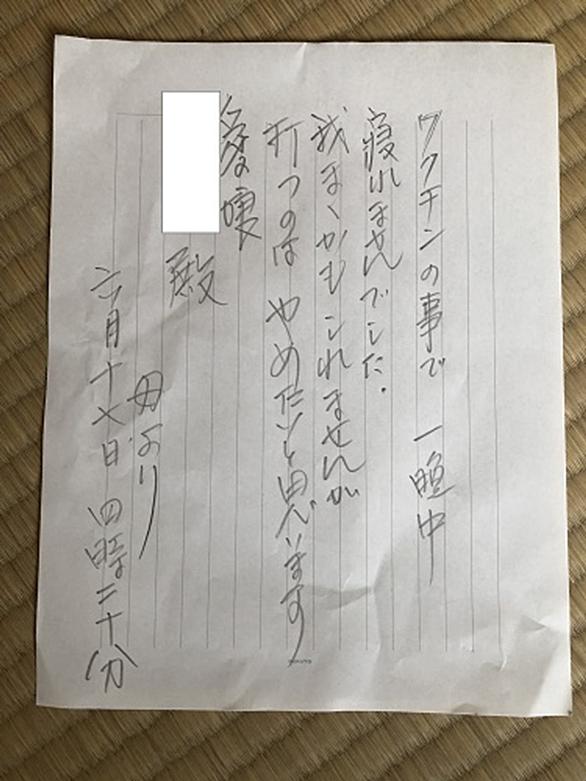 ワクチンの事で 一晩中
寝れませんでした.
我まゝかもしれませんが
打つのは やめたいと思います
愛嬢
殿
母より
六月十七日 四時二十分